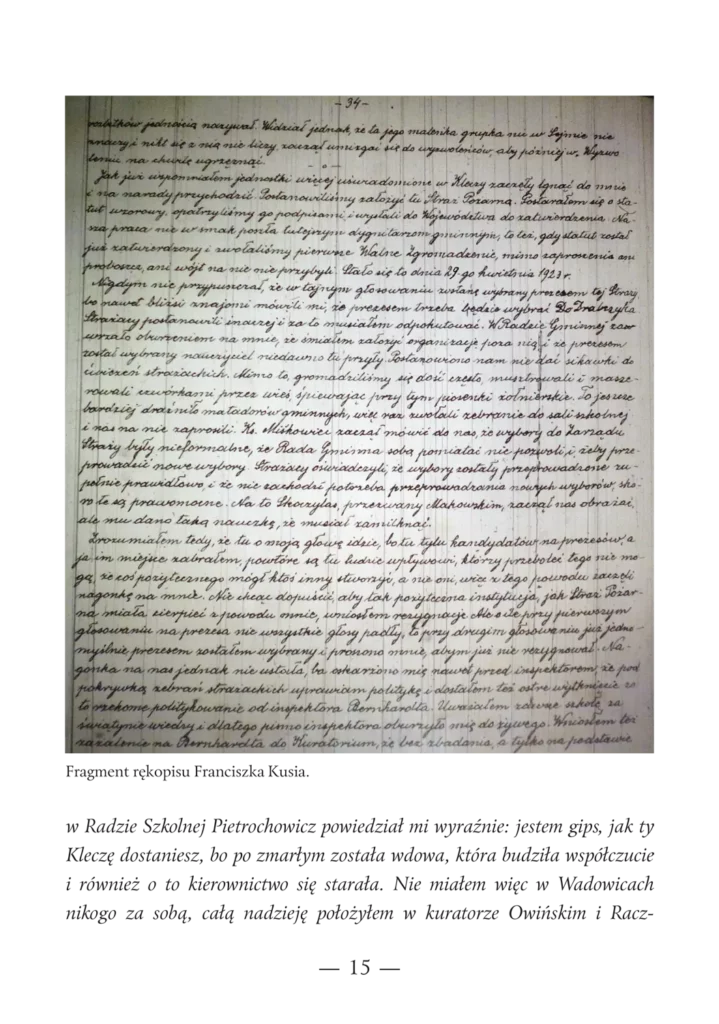 - 34 -
robotków jednością nazywał. Widział jednak, że ta jego maleńka grupka nic w Sejmie nie
znaczy i nikt się z nią nie liczy, zaczął umizgać się do wyzwoleńców, aby później w „Wyzwo
leniu" na chwilę ugrzęznąć.
Jak już wspomniałem jednostki więcej uświadomione w Kleczy zaczęły lgnąć do mnie
i na narady przychodzić. Postanowiliśmy założyć tu Straż Pożarną. Postarałem się o sta-
tut wzorowy, opatrzyliśmy go podpisami i wysłali do Województwa do zatwierdzenia. Na-
sza praca nie w smak poszła tutejszym dygnitarzom gminnym, to też, gdy statut został
już zatwierdzony i zwołaliśmy pierwsze Walne Zgromadzenie, mimo zaproszenia ani
proboszcz, ani wójt na nie nie przybyli. Stało się to dnia 29-go kwietnia 1923 r.
Nigdym nie przypuszczał, że w tajnym głosowaniu zostanę wybrany prezesem tej Straży
bo nawet bliżsi znajomi mówili mi, że prezesem trzeba będzie wybrać Do Drabczyka
Strażacy postanowili inaczej i za to musiałem odpokutować. W Radzie Gminnej zaw
wrzało oburzeniem na mnie, że śmiałem założyć organizację poza nią i że prezesem
został wybrany nauczyciel niedawno tu przyjęty. Postanowiono nam nie dać sikawki do
ćwiczeń strażackich. Mimo to, gromadziliśmy się dość często, musztrowali i masze-
rowali czwórkami przez wieś, śpiewając przy tym piosenki żołnierskie. To jeszcze
bardziej drażniło matadorów gminnych, więc raz zwołali zebranie do sali szkolnej
i nas na nie zaprosili. Ks. Miśkowiec zaczął mówić do nas, że wybory do Zarządu
Straży były nieformalne, że Rada Gminna sobą pomiatać nie pozwoli i, żeby prze-
prowadzić nowe wybory. Strażacy oświadczyli, że wybory zostały przeprowadzone zu-
pełnie prawidłowo, i że nie zachodzi potrzeba przeprowadzania nowych wyborów, sko-
ro te są prawomocne. Na to Skoczylas, przezwany Makowskim, zaczął nas obrażać,
ale mu dano taką nauczkę, że musiał zamilknąć.
Zrozumiałem tedy, że tu o moją głowę idzie, bo tu tylu kandydatów na prezesów, a
ja im miejsce zabrałem, powtóre są tu ludzie wpływowi, którzy przeboleć tego nie mo-
gą, że coś pożytecznego mógł ktoś inny stworzyć, a nie oni, więc z tego powodu zaczęli
nagonkę na mnie. Nie chcąc dopuścić, aby tak pożyteczna instytucja, jak Straż Pożar-
na miała cierpieć z powodu mnie, wniosłem rezygnację. Ale o ile przy pierwszym
głosowaniu na prezesa nie wszystkie głosy padły, to przy drugim głosowaniu już jedno-
myślnie prezesem zostałem wybrany i proszono mnie, abym już nie rezygnował. Na-
gonka na nas jednak nie ustała, ba oskarżono mię nawet przed inspektorem, że pod
pokrywką zebrań strażackich uprawiam politykę i dostałem też ostre wytknięcie za
to rzekome politykowanie od inspektora Bernhardta. Uważałem zawsze szkołę za
świątynię wiedzy i dlatego pismo inspektora oburzyło mię do żywego. Wniosłem też
zażalenie na Bernhardta do Kuratorium, że bez zbadania, a tylko na podstawie
Fragment rękopisu Franciszka Kusia.
w Radzie Szkolnej Pietrochowicz powiedział mi wyraźnie: jestem gips, jak ty
Kleczę dostaniesz, bo po zmarłym została wdowa, która budziła współczucie
i również o to kierownictwo się starała. Nie miałem więc w Wadowicach
nikogo za sobą, całą nadzieję położyłem w kuratorze Owińskim i Racz-
— 15 —